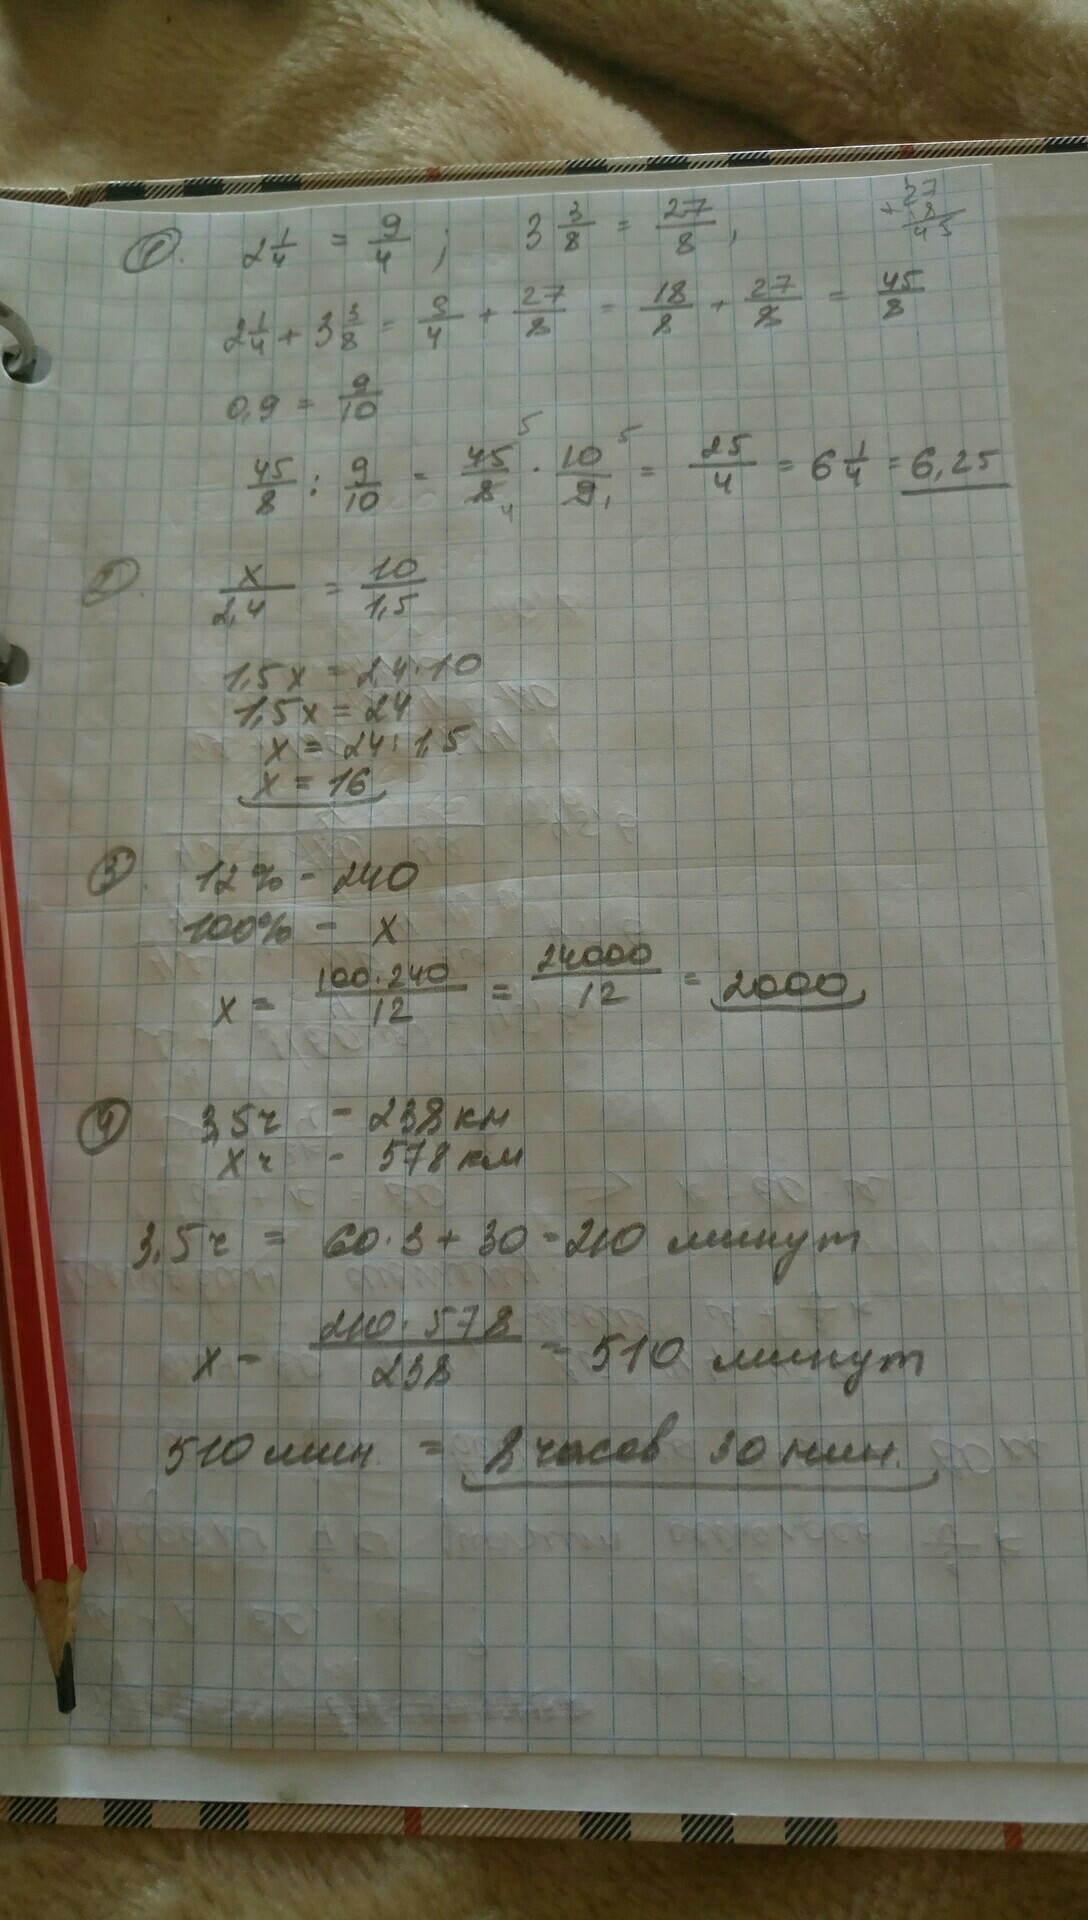 1. 2 1/4 = 9/4; 3 3/8 = 27/8,
+ 27
18
45
2 1/4 + 3 3/8 = 9/4 + 27/8 = 18/8 + 27/8 = 45/8
0,9 = 9/10
45/8 : 9/10 = 45/8 · 10/9 = 25/4 = 6 1/4 = 6,25
2. x/2,4 = 10/1,5
1,5x = 2,4·10
1,5x = 24
x = 24:1,5
x = 16
3. 12% - 240
100% - x
x = 100·240/12 = 24000/12 = 2000
4 3,5ч - 238 км
xч - 578 км
3,5ч = 60·3+30=210 минут
x = 210·578/238 = 510 минут
510 мин. = 8 часов 30 мин.